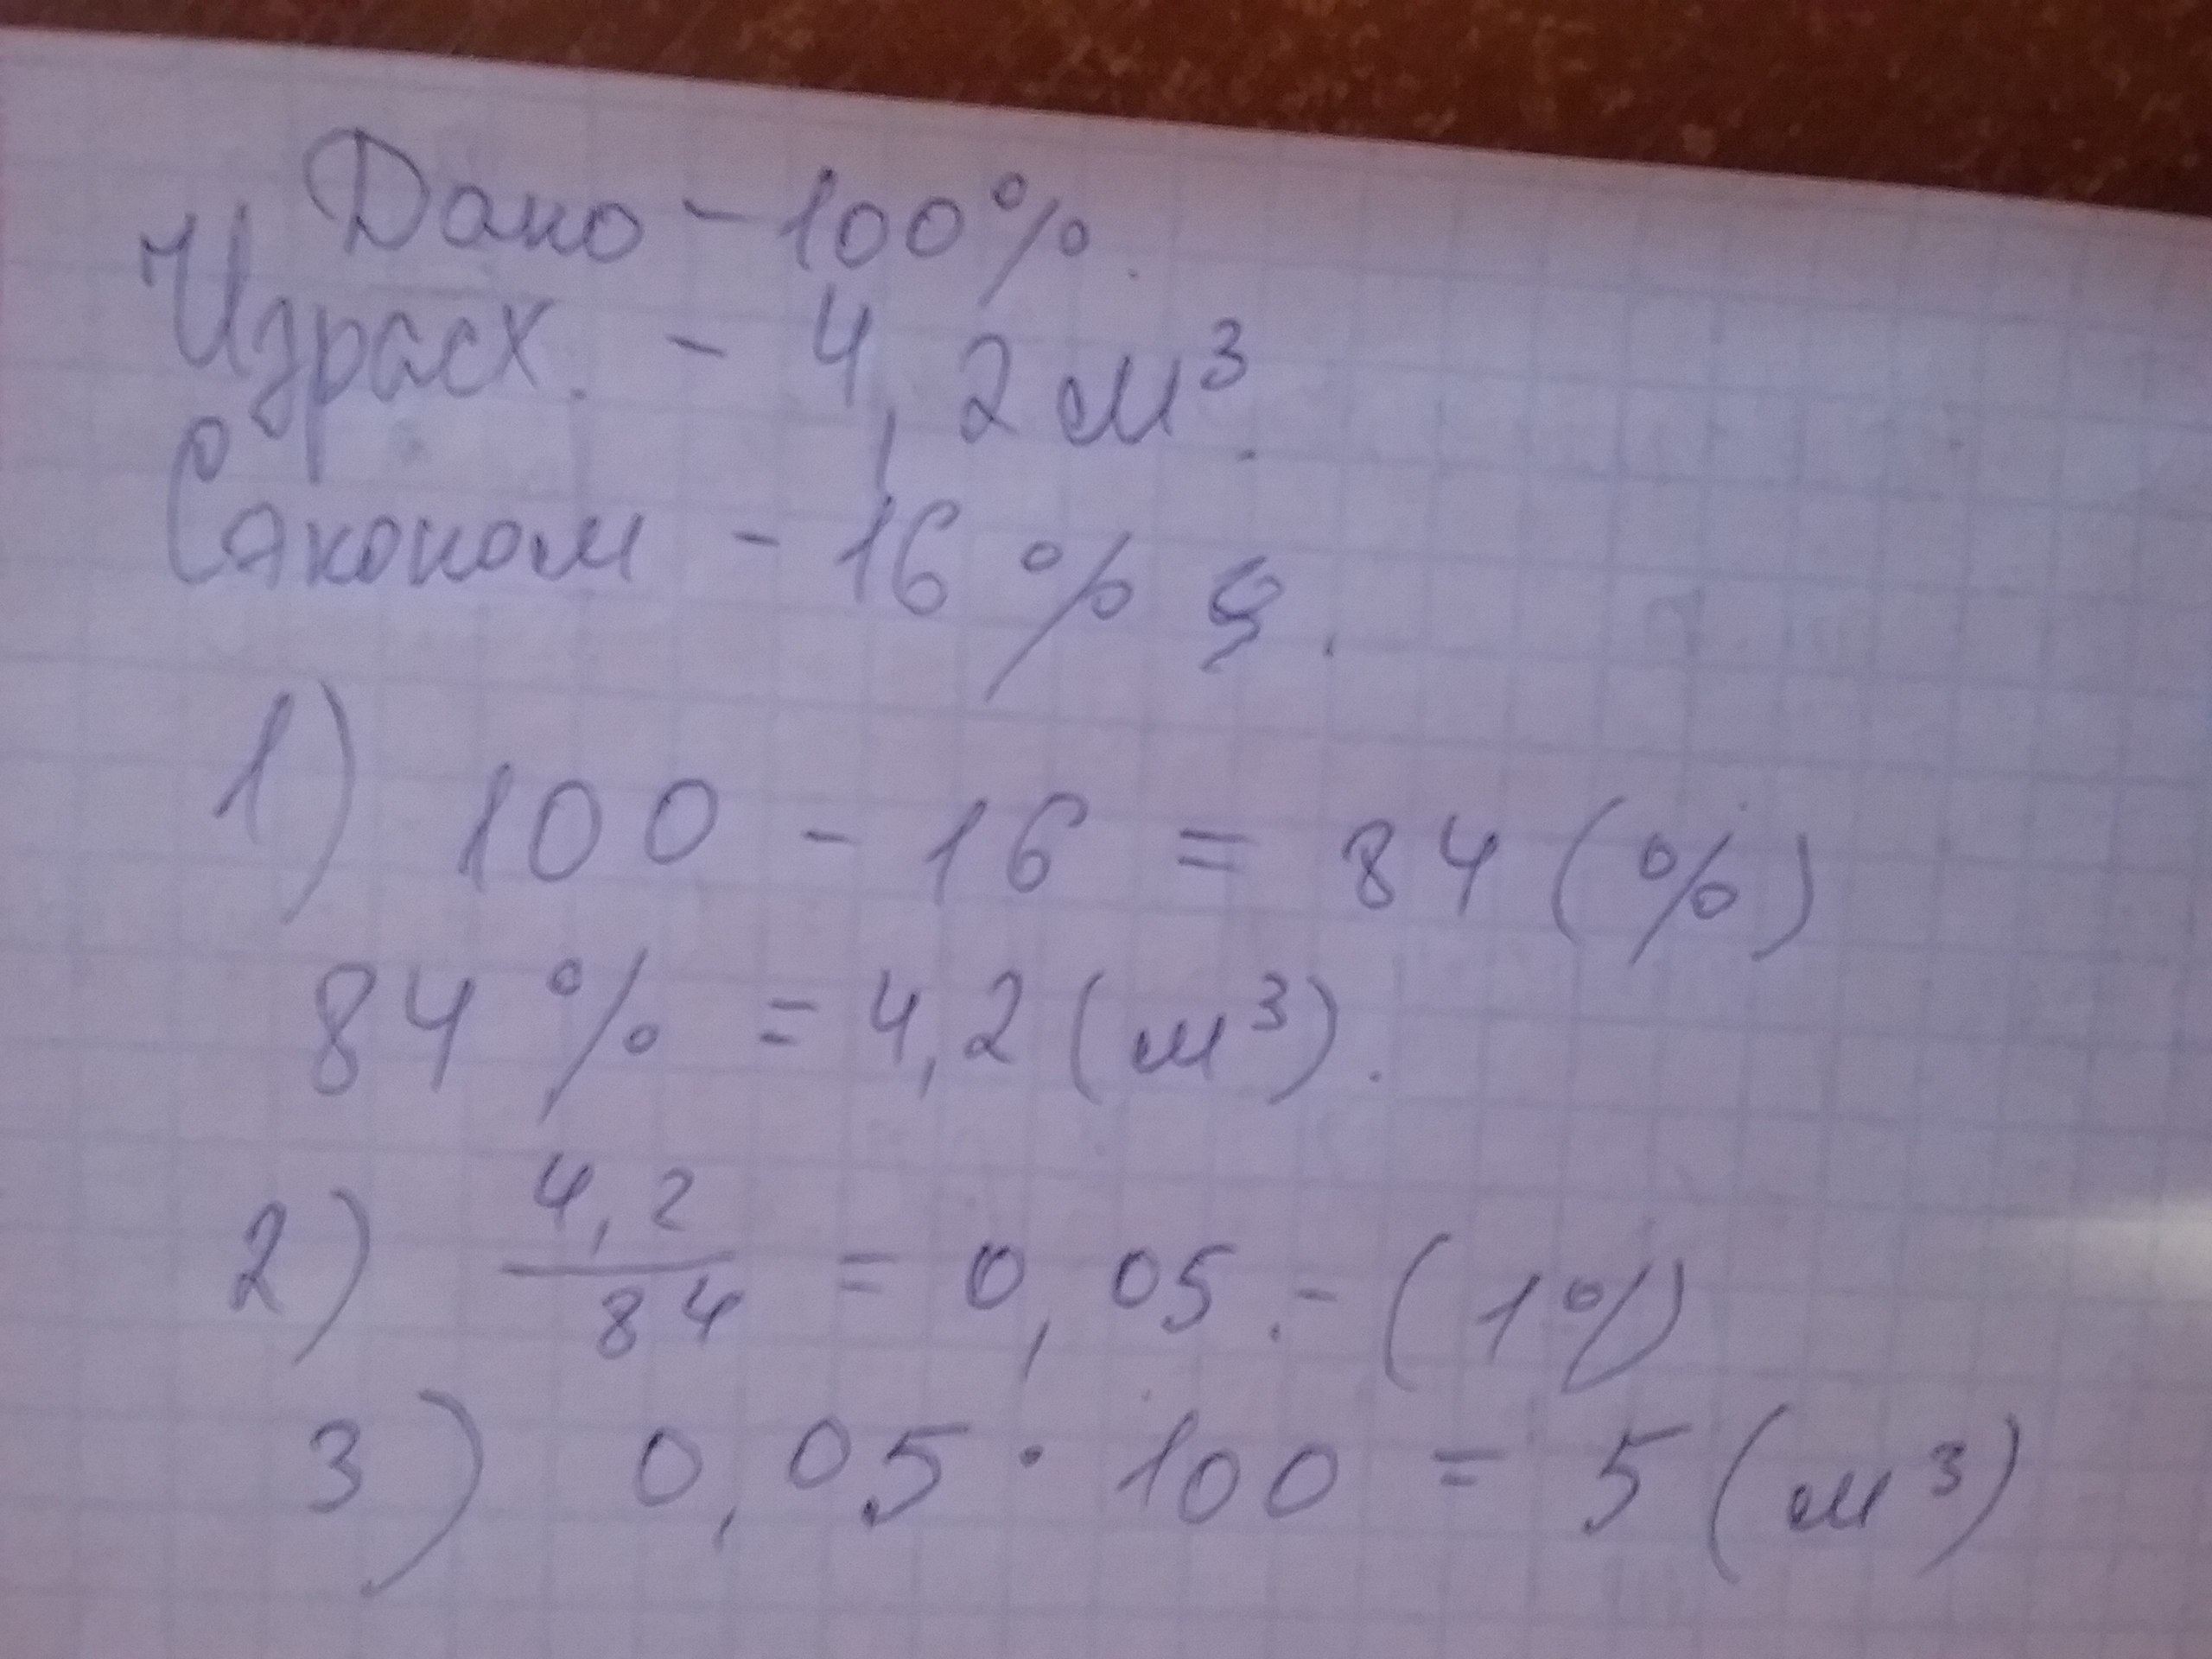 Дано - 100%.
Израсх. - 4,2 м³.
Сяконом - 16%.
1) 100 - 16 = 84 (%)
84% = 4,2 (м³).
2) 4,2/84 = 0,05. - (1%)
3) 0,05 · 100 = 5 (м³)